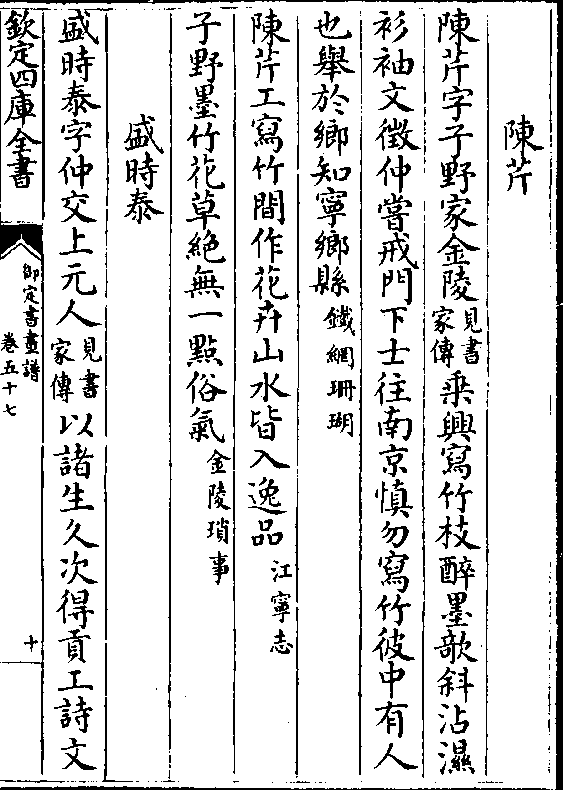 陳芹
陳芹字子野家金陵見書家傳乗興寫竹枝醉墨欹斜沾濕
衫袖文徴仲嘗戒門下士往南京慎勿寫竹彼中有人
也舉於鄉知寧鄉縣鐵網珊瑚
陳芹工寫竹間作花卉山水皆入逸品江寧志
子野墨竹花草絶無一點俗氣金陵瑣事
盛時泰
盛時泰字仲交上元人見書家傳以諸生久次得貢工詩文
欽定四庫全書
御定書畫譜
卷五十七
十